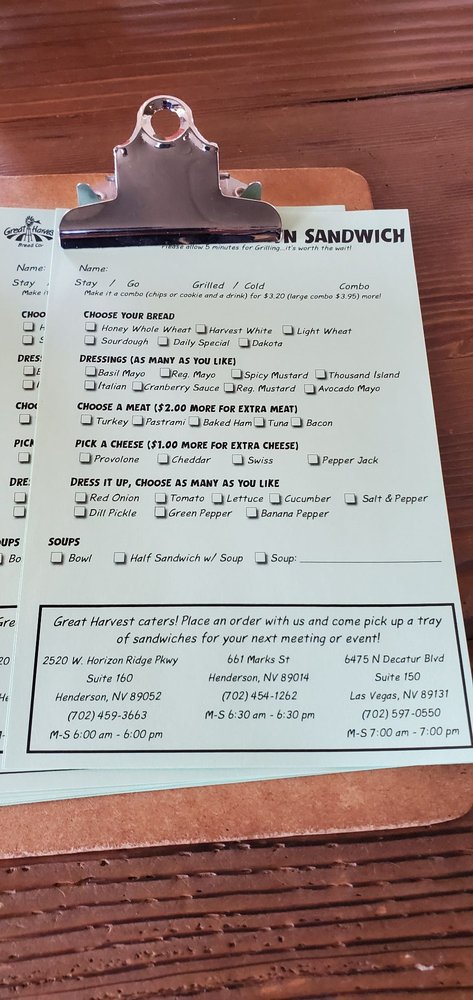 Great Harvest
Bread Co.
N SANDWICH
Please allow 5 minutes for Grilling...it's worth the wait!
Name:
Stay / Go Grilled / Cold Combo
Make it a combo (chips or cookie and a drink) for $3.20 (large combo $3.95) more!
CHOOSE YOUR BREAD
Honey Whole Wheat Harvest White Light Wheat
Sourdough Daily Special Dakota
DRESSINGS (AS MANY AS YOU LIKE)
Basil Mayo Reg. Mayo Spicy Mustard Thousand Island
Italian Cranberry Sauce Reg. Mustard Avocado Mayo
CHOOSE A MEAT ($2.00 MORE FOR EXTRA MEAT)
Turkey Pastrami Baked Ham Tuna Bacon
PICK A CHEESE ($1.00 MORE FOR EXTRA CHEESE)
Provolone Cheddar Swiss Pepper Jack
DRESS IT UP, CHOOSE AS MANY AS YOU LIKE
Red Onion Tomato Lettuce Cucumber Salt & Pepper
Dill Pickle Green Pepper Banana Pepper
SOUPS
Bowl Half Sandwich w/ Soup Soup:
Great Harvest caters! Place an order with us and come pick up a tray
of sandwiches for your next meeting or event!
2520 W. Horizon Ridge Pkwy
Suite 160
Henderson, NV 89052
(702) 459-3663
M-S 6:00 am - 6:00 pm
661 Marks St
Henderson, NV 89014
(702) 454-1262
M-S 6:30 am - 6:30 pm
6475 N Decatur Blvd
Suite 150
Las Vegas, NV 89131
(702) 597-0550
M-S 7:00 am - 7:00 pm